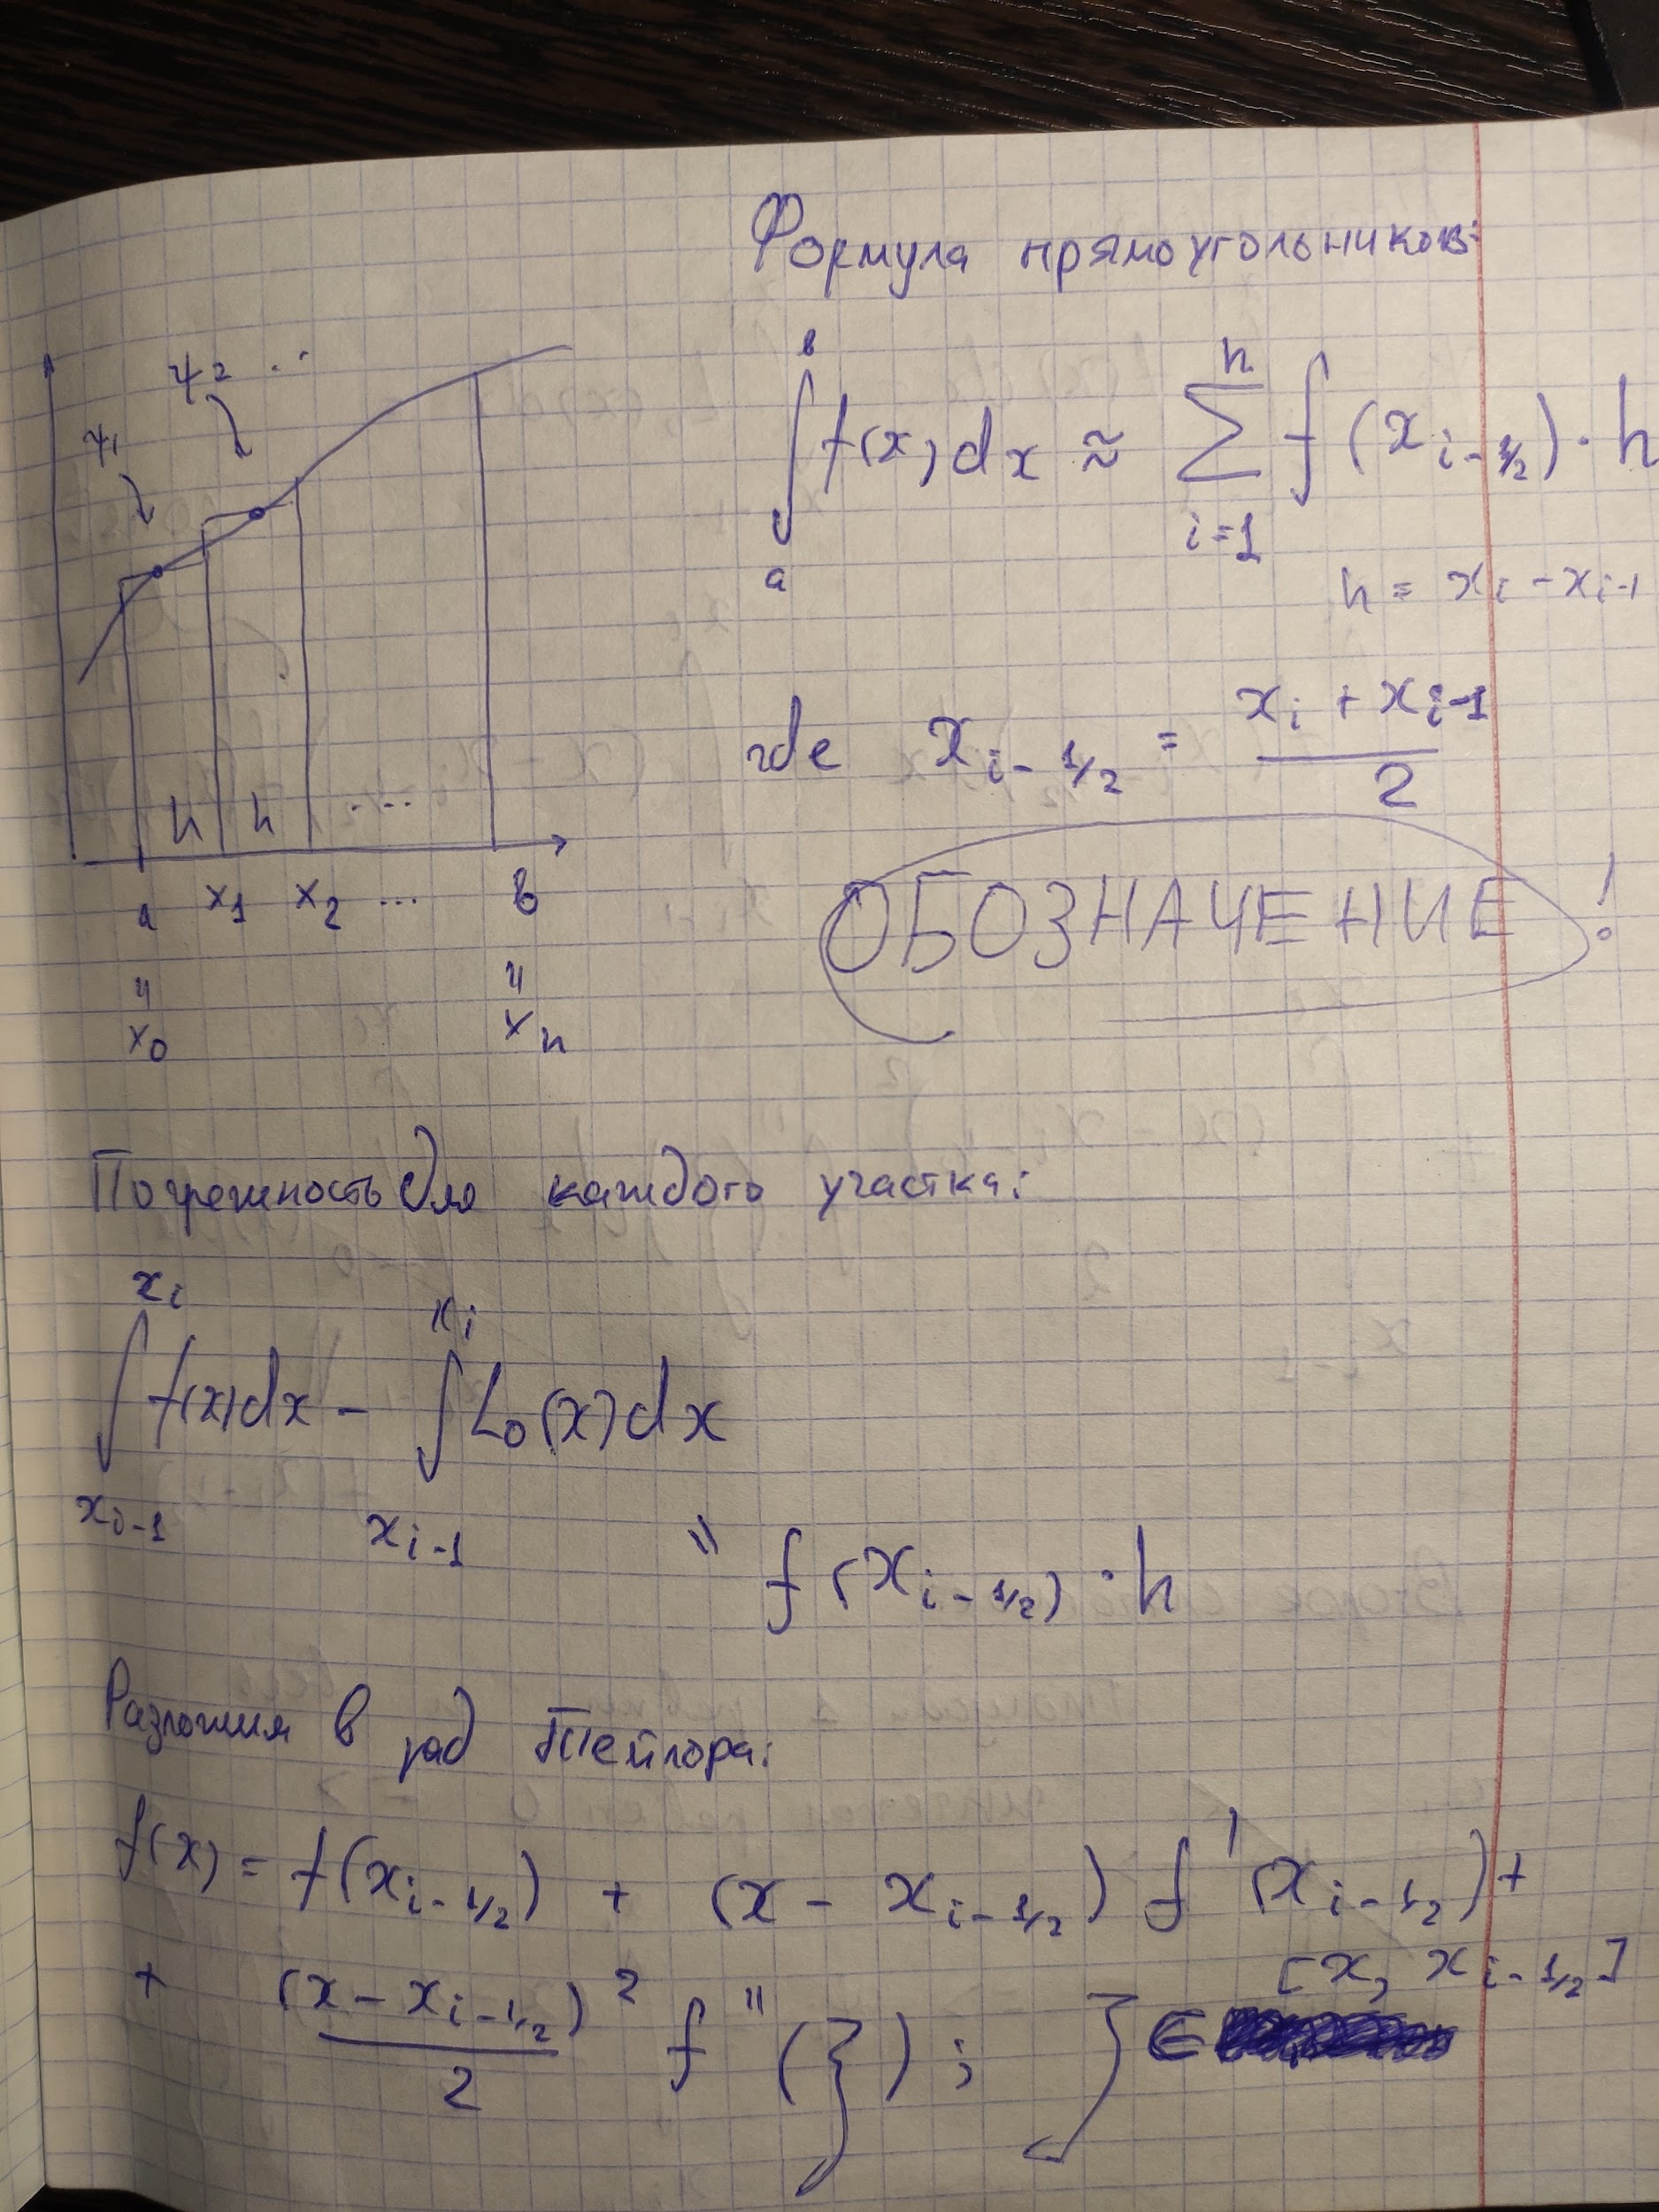 Формула прямоугольников:
ψ1 ψ2 ...
∫_a^b f(x)dx ≈ ∑_{i=1}^{n} f(x_{i-1/2})·h
h = x_i - x_{i-1}
где x_{i-1/2} = (x_i + x_{i-1})/2
h h ...
a x_1 x_2 ... b
" "
x_0 x_n
ОБОЗНАЧЕНИЕ!
Погрешность для каждого участка:
∫_{x_{i-1}}^{x_i} f(x)dx - ∫_{x_{i-1}}^{x_i} L_0(x)dx
" f(x_{i-1/2})·h
Разложим в ряд Тейлора:
f(x) = f(x_{i-1/2}) + (x - x_{i-1/2}) f'(x_{i-1/2}) +
+ (x - x_{i-1/2})²/2 f''(ξ); ξ ∈ [x, x_{i-1/2}]